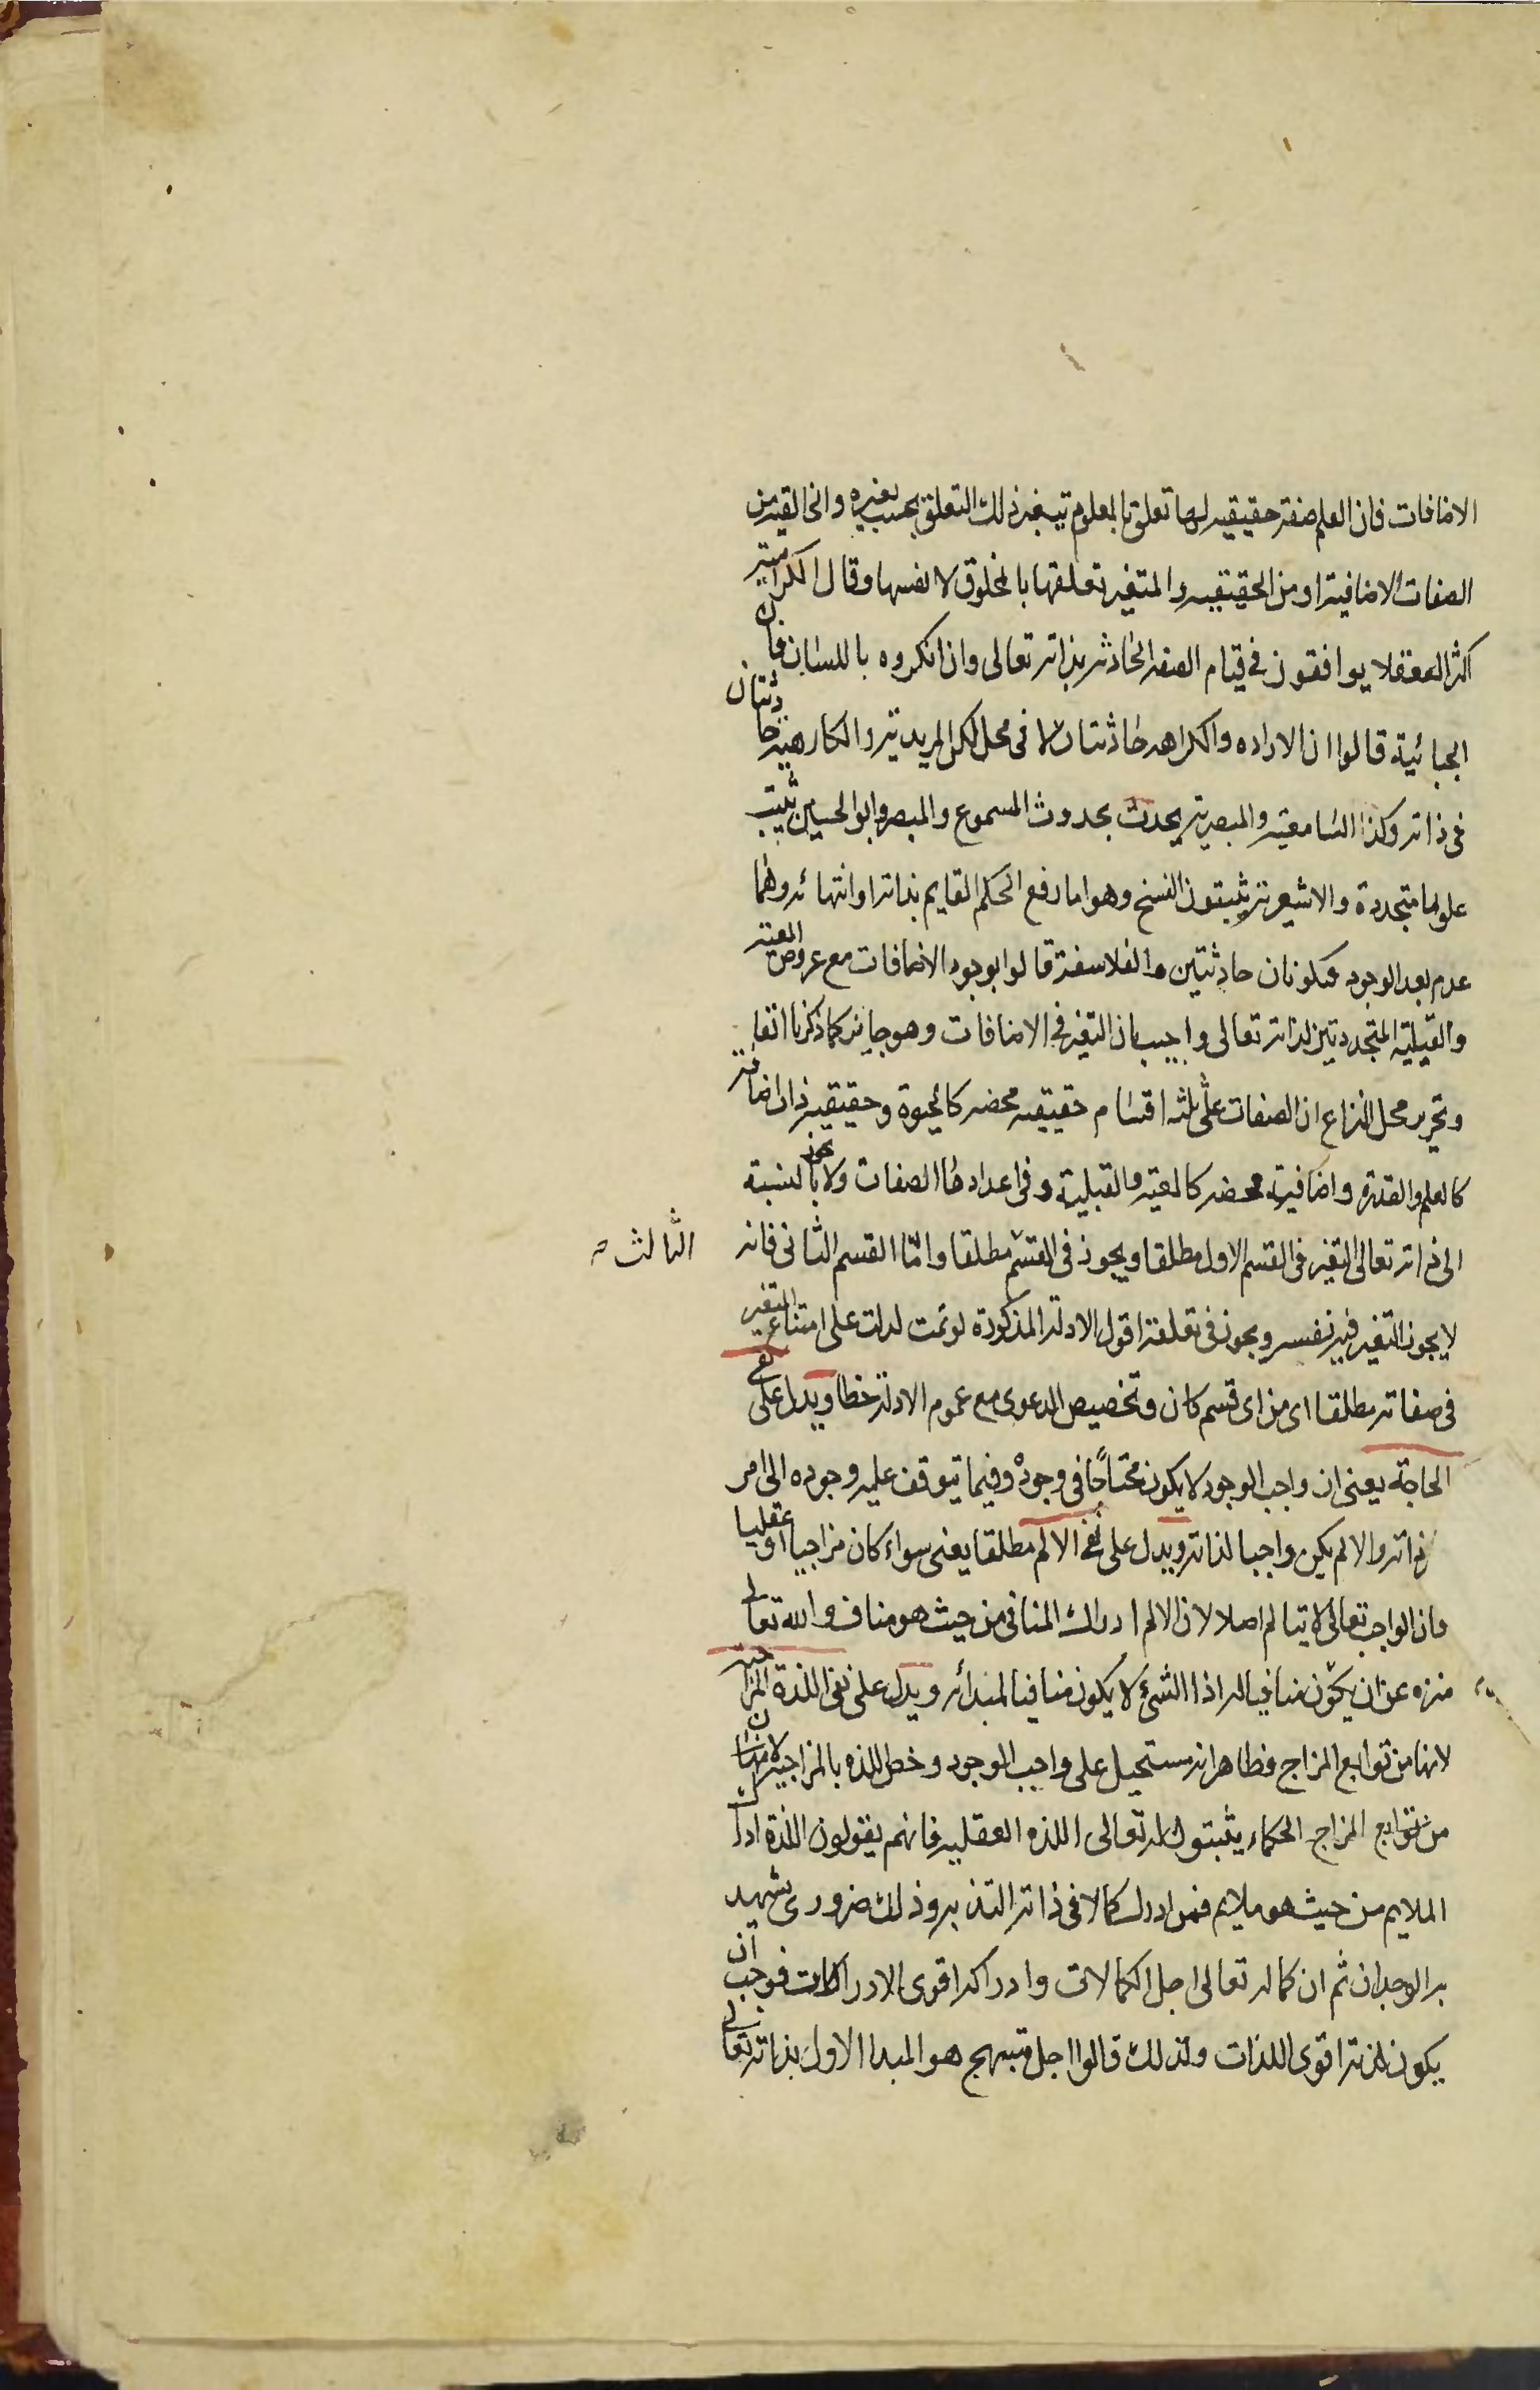 الاضافات فان العلم صفة حقيقيه لها تعلق بالمعلوم يتغير ذلك التعلق بحسب تغيره والخالقية من
الصفات الاضافية او من الحقيقيه والمتغير تعلقها بالمخلوق لا نفسها وقال الكرامية
اكثر العقلا يوافقون في قيام الصفه الحادثه بذاته تعالى وان انكروه باللسان فان
الجبائية قالوا ان الاراده والكراهه حادثتان لا فى محل لكن المريدية والكارهية حادثتان
فى ذاته وكذا السامعية والمبصرية يحدث بحدوث المسموع والمبصر وابو الحسين يثبت
علوما متجددة والاشعرية يثبتون النسخ وهو اما رفع الحكم القايم بذاته او انتهائه وهما
عدم بعد الوجود فيكونان حادثتين والفلاسفة قالوا بوجود الاضافات مع عروض المعية
والقبلية المتجددتين لذاته تعالى واجيب بان التغير فى الاضافات وهو جايز كما ذكرنا انفا
وتحرير محل النزاع ان الصفات على ثلثه اقسام حقيقيه محضه كالحيوة وحقيقية ذات اضافة
كالعلم والقدرة واضافية محضه كالمعية والقبلية وفى اعدادها الصفات ولا يجوز بالنسبة
الى ذاته تعالى التغير فى القسم الاول مطلقا ويجوز فى القسم مطلقا واما القسم الثانى فانه
الثالث صح
لا يجوز التغير فيه نفسه ويجوز فى تعلقه اقول الادلة المذكورة لو تمت لدلت على امتناع التغير
فى صفاته مطلقا اى من اى قسم كان وتخصيص الدعوى مع عموم الادلة خطا ويدل على نفى
الحاجة يعنى ان واجب الوجود لا يكون محتاجا فى وجوده وفيما يتوقف عليه وجوده الى امر
ذاته والا لم يكن واجبا لذاته ويدل على نفى الالم مطلقا يعنى سواء كان مزاجيا او عقليا
فان الواجب تعالى لا يتالم اصلا لان الالم ادراك المنافى من حيث هو مناف والله تعالى
منزه عن ان يكون منافيا له اذ الشئ لا يكون منافيا لمبدائه ويدل على نفى اللذة المزاجية
لانها من توابع المزاج فظاهر انه مستحيل على واجب الوجود وخص اللذه بالمزاجية لان
من توابع المزاج الحكماء يثبتون له تعالى اللذه العقليه فانهم يقولون اللذة ادراك
الملايم من حيث هو ملايم فمن ادرك كمالا فى ذاته التذ به وذلك ضرورى يشهد
به الوجدان ثم ان كماله تعالى اجل الكمالات وادراكه اقوى الادراكات فوجب ان
يكون لذته اقوى اللذات ولذلك قالوا اجل مبتهج هو المبدا الاول بذاته تعالى